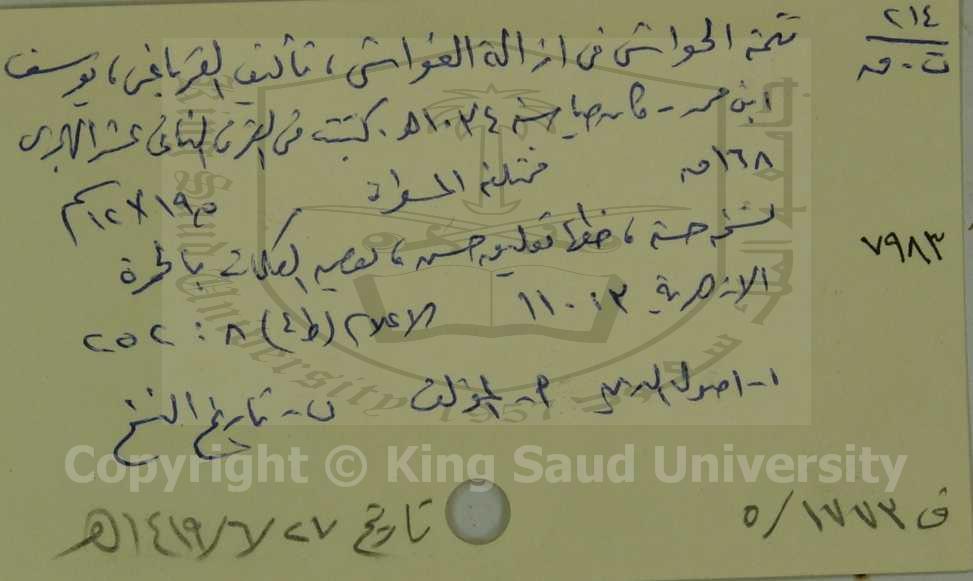 ٢١٤
ت . ق
تتمة الحواشي في ازالة الغواشي ، تأليف القرباغي ، يوسف
ابن محمد - كان حيا سنة ١٠٣٤ه . كتبت في القرن الثاني عشر الهجري
١٦٨ ق مختلفة المسطرة ١٩٫٥ × ١٢ سم
نسخة حسنة ، خطها تعليق حسن ، بعض الكلمات بالحمرة
٧٩٨٣
الازهرية ٣ : ١١٠ الاعلام (ط٤) ٨ : ٢٥٢
١- اصول الدين أ- المؤلف ب- تاريخ النسخ
Copyright © King Saud University
ف ١٧٧٣ / ٥
تاريخ ٢٧ / ٦ / ١٤١٩ه